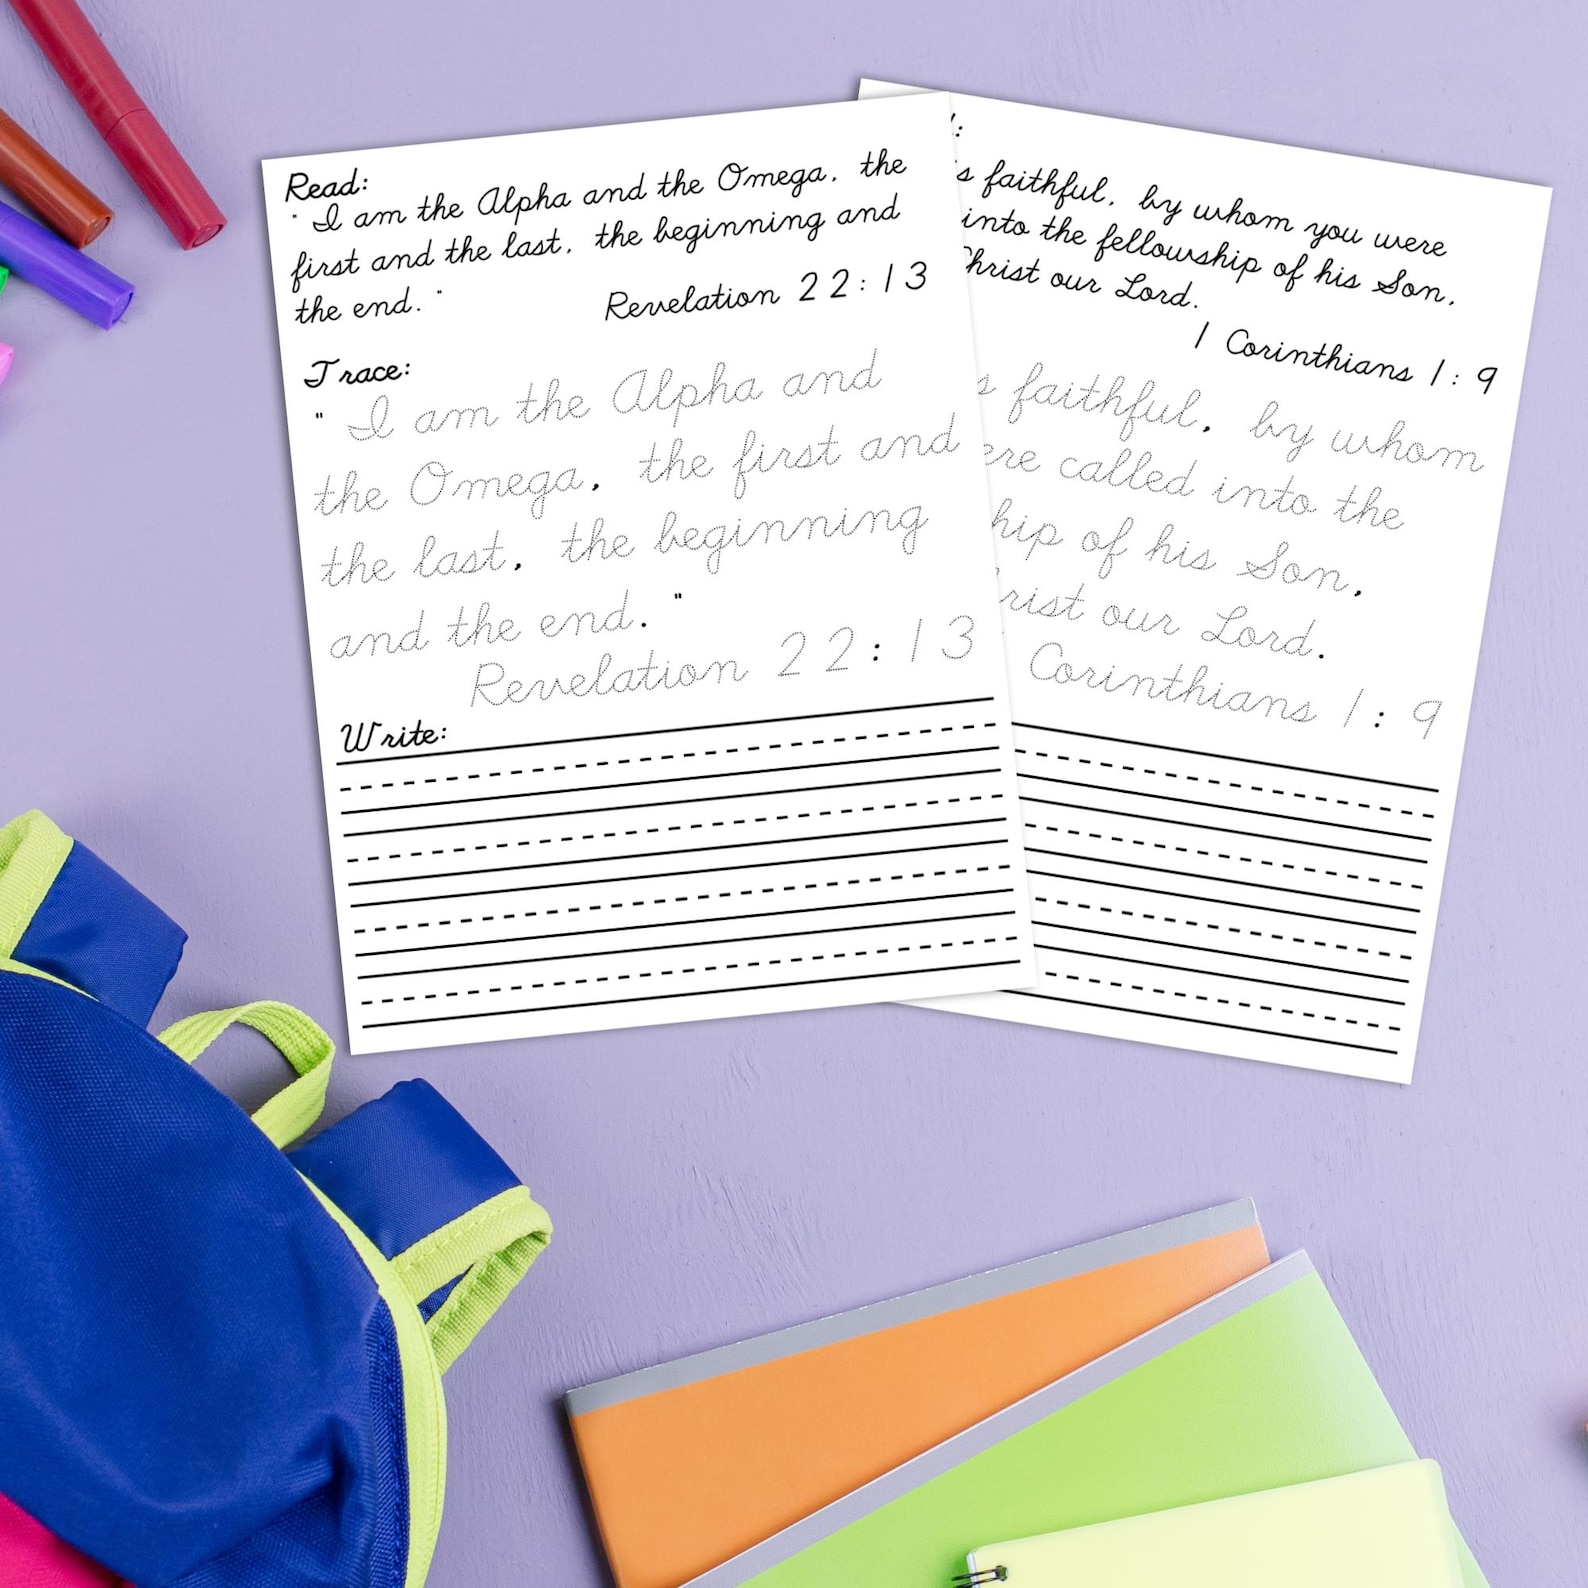 Read:
"I am the Alpha and the Omega, the
first and the last, the beginning and
the end."
Revelation 22:13
Trace:
"I am the Alpha and
the Omega, the first and
the last, the beginning
and the end."
Revelation 22:13
Write:
faithful, by whom you were
into the fellowship of his Son,
our Lord.
1 Corinthians 1:9
faithful, by whom
called into the
of his Son,
our Lord.
Corinthians 1:9